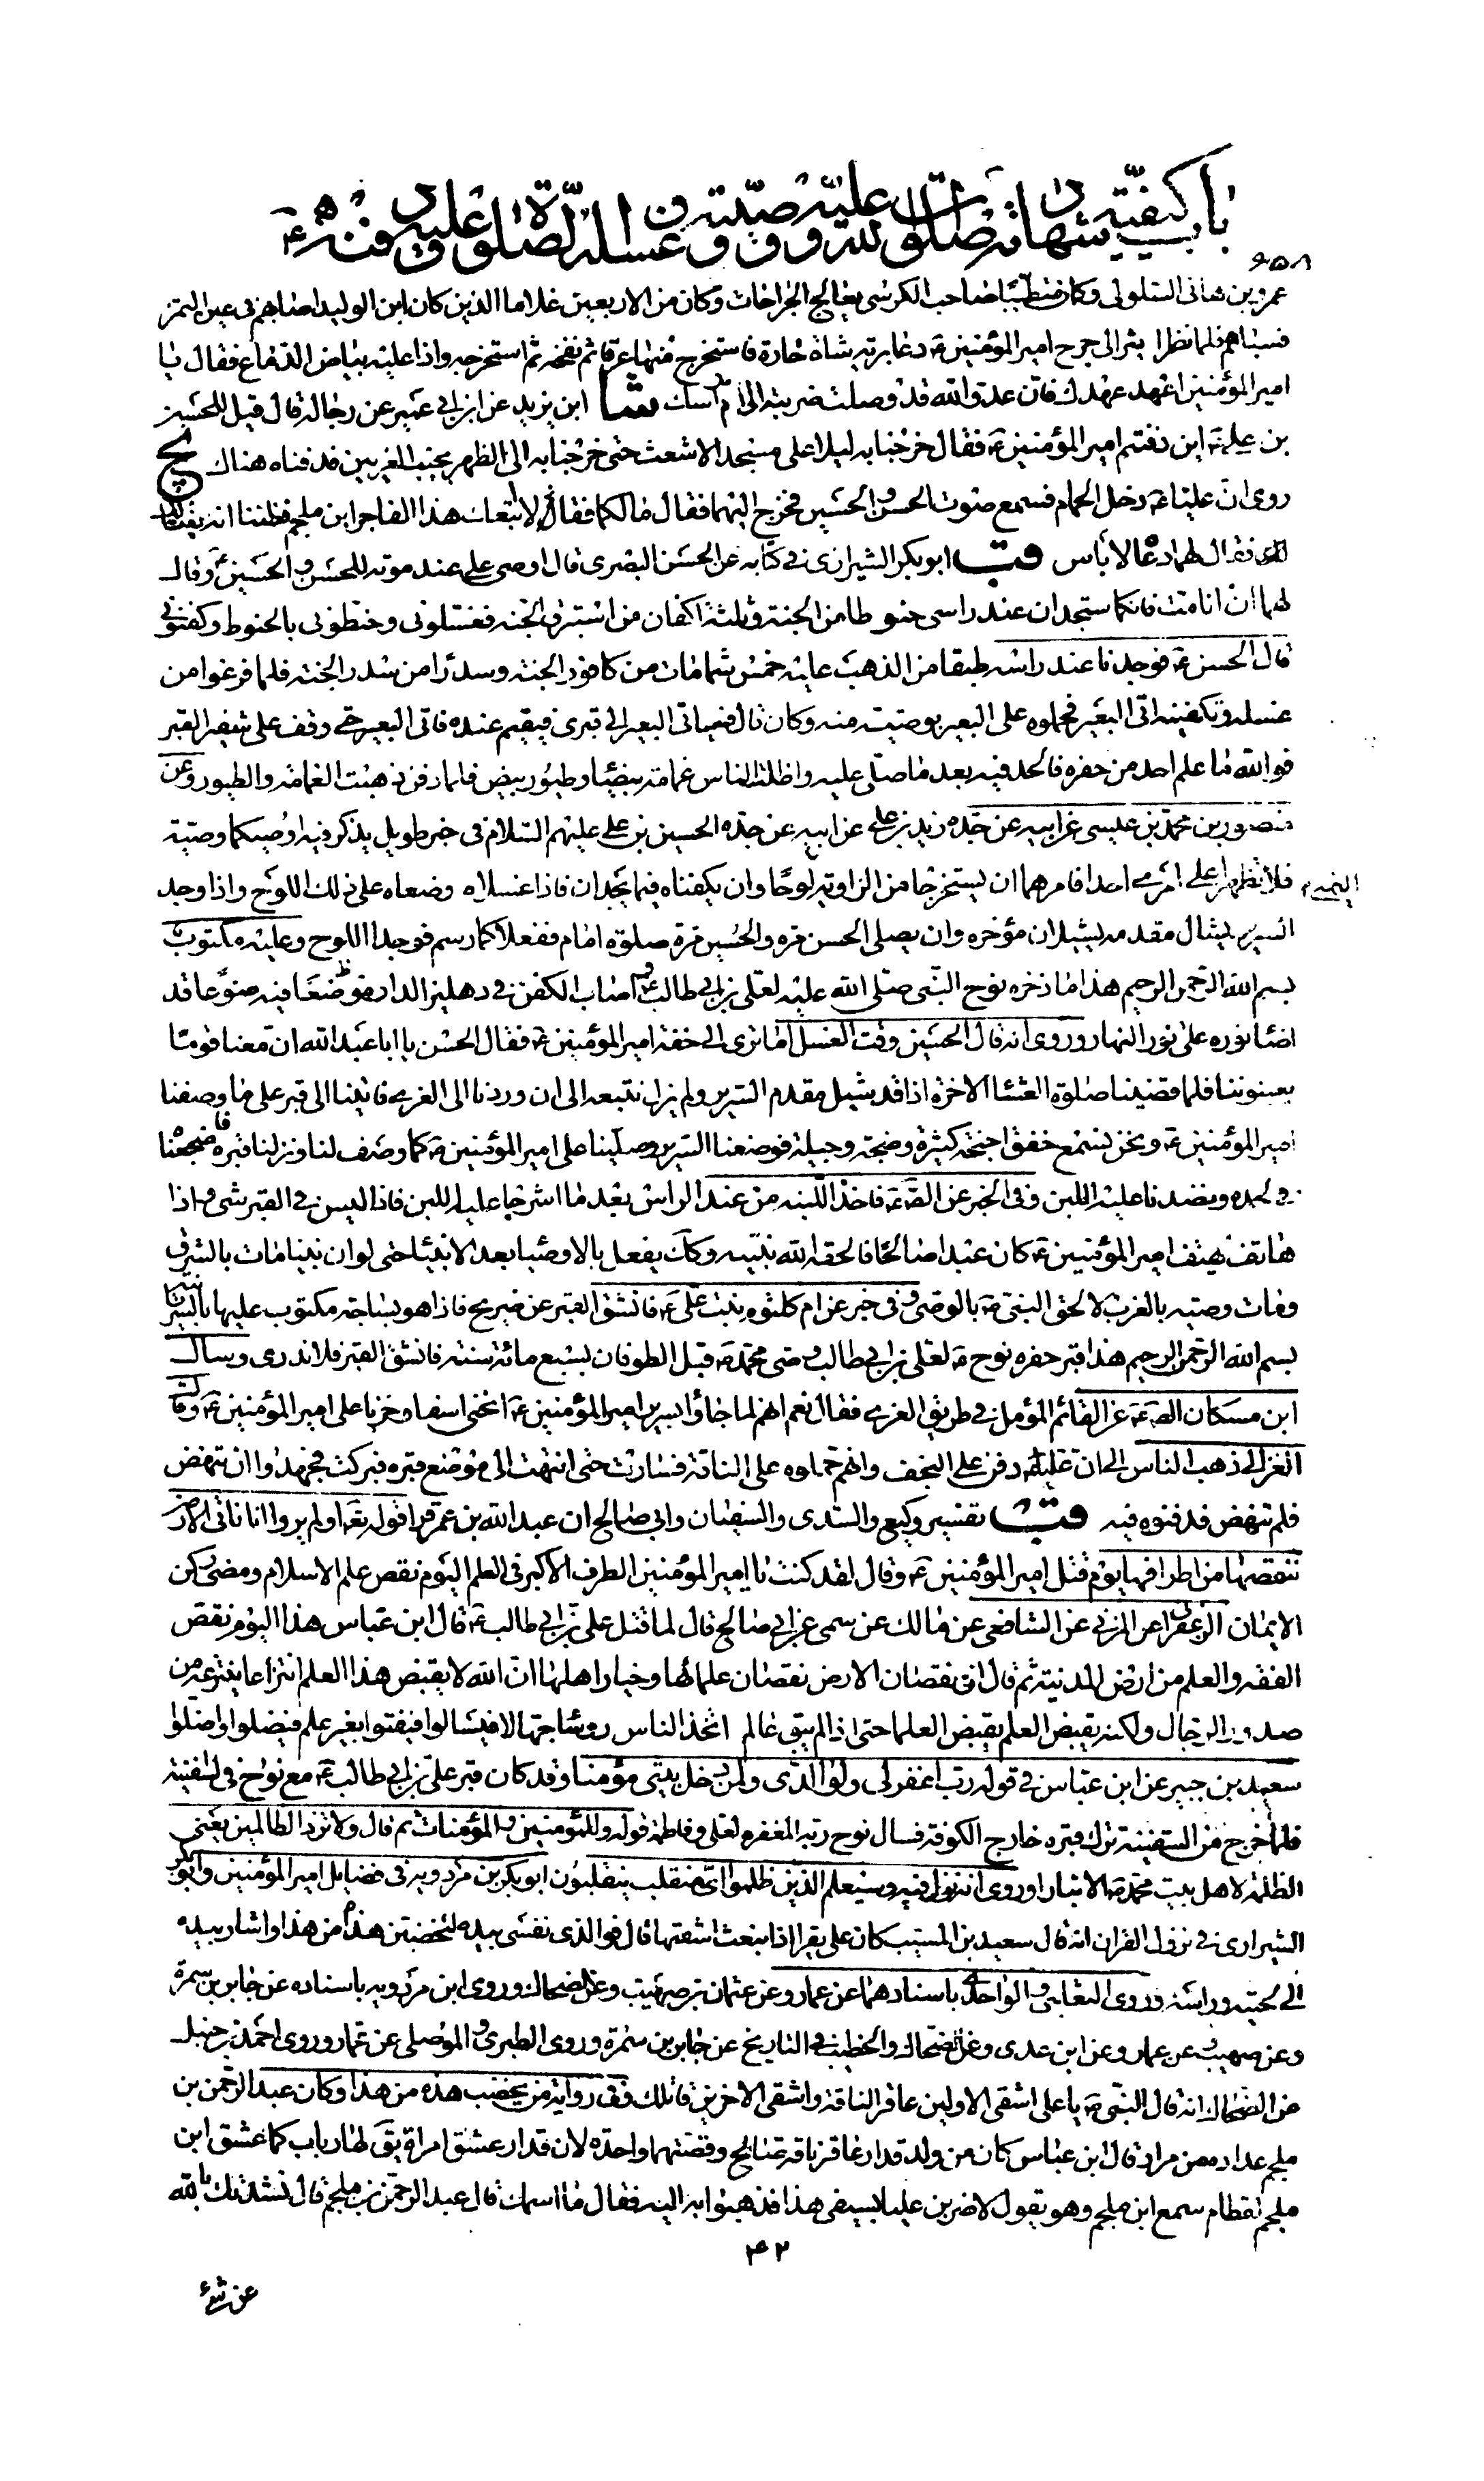 باب كيفية شهادته صلوات الله عليه ووصيته وغسله والصلوة عليه ودفنه
٦٥٨
عمرو بن هانى السلولى وكان متطببا صاحب الكرسى يعالج الجراحات وكان من الاربعين غلاما الذين كان ابن الوليد اصابهم فى عين التمر
فسباهم فلما نظر اثير الى جرح امير المؤمنين ع دعا برية شاة حارة فاستخرج منها عرقا ثم نفخه ثم استخرجه واذا عليه بياض الدماغ فقال يا
امير المؤمنين اعهد عهدك فان عدو الله قد وصلت ضربته الى ام راسك شا ابن يزيد عن ابن ابى عمير عن رجاله قال قيل للحسين
بن على ع اين دفنتم امير المؤمنين ع فقال خرجنا به ليلا على مسجد الاشعث حتى خرجنا به الى الظهر بجنب الغريين فدفناه هناك يج
روى ان عليا ع دخل الحمام فسمع صوت الحسن والحسين فخرج اليهما فقال مالكما فقالا اتبعك هذا الفاجر ابن ملجم فظننا انه يغتالك
فقال لهما دعاه لا باس قب ابو بكر الشيرازى فى كتابه عن الحسن البصرى قال اوصى على عند موته للحسن والحسين ع وقال
لهما ان انا مت فانكما ستجدان عند راسى حنوطا من الجنة وثلثة اكفان من استبرق الجنة فغسلونى وحنطونى بالحنوط وكفنونى
قال الحسن ع فوجدنا عند راسه طبقا من الذهب عليه خمس شمامات من كافور الجنة وسدرا من سدر الجنة فلما فرغوا من
غسله وتكفينه اتى البعير فحملوه على البعير بوصيت منه وكان قال فسياتى البعير الى قبرى فيقيم عنده فاتى البعير حتى وقف على شفير القبر
فوالله ما علم احد من حفره فالحد فيه بعد ما صلى عليه واظلت الناس غمامة بيضاء وطيور بيض فلما دفن ذهبت الغمامة والطيور وعن
منصور بن محمد بن عيسى عن ابيه عن جده زيد بن على عن ابيه عن جده الحسين بن على عليهم السلام فى خبر طويل يذكر فيه اوصيكما وصية
فلا تظهرا على امرى احدا فامرهما ان يستخرجا من الزاوية اليمنى لوحا وان يكفناه فيما يجدان فاذا غسلاه وضعاه على ذلك اللوح واذا وجد
السرير يشال مقدمه يشيلان مؤخره وان يصلى الحسن مرة والحسين مرة صلوة امام ففعلا كما رسم فوجدا اللوح وعليه مكتوب
بسم الله الرحمن الرحيم هذا ما ذخره نوح النبى صلى الله عليه لعلى بن ابى طالب ع واصابا الكفن فى دهليز الدار موضعا فيه ضوءا قد
اضاء نوره على نور النهار وروى انه قال الحسين وقت الغسل اما ترى الى خفة امير المؤمنين ع فقال الحسن يا ابا عبد الله ان معنا قوما
يعينوننا فلما قضينا صلوة العشاء الاخرة اذا قد شيل مقدم السرير ولم يزل نتبعه الى ان وردنا الى الغرى فاتينا الى قبر على ما وصفنا
امير المؤمنين ع ونحن نسمع خفق اجنحة كثيرة وضجة وجلبة فوضعنا السرير وصلينا على امير المؤمنين ع كما وصف لنا ونزلنا قبره فاضجعناه
فى لحده ونضدنا عليه اللبن وفى الخبر عن الص ع فاخذ اللبنة من عند الراس بعد ما اشرجا عليه اللبن فاذا ليس فى القبر شىء فاذا
هاتف يهتف امير المؤمنين ع كان عبدا صالحا فالحقه الله بنبيه وكذلك يفعل بالاوصياء بعد الانبياء حتى لو ان نبيا مات بالشرق
ومات وصيه بالغرب لالحق النبى ص بالوصى وفى خبر عن ام كلثوم بنت على ع فانشق القبر عن ضريح فاذا هو بساجة مكتوب عليها بالسريانية
بسم الله الرحمن الرحيم هذا قبر حفره نوح ع لعلى بن ابى طالب وصى محمد ص قبل الطوفان بسبع مائة سنة فانشق القبر فلا ندرى وسال
ابن مسكان الص ع عن القائم المؤمل فى طريق الغرى فقال نعم انهم لما جاؤا بسرير امير المؤمنين ع انحنى اسفا وحزنا على امير المؤمنين ع وقالت
الغزالى ذهب الناس الى ان عليا ع دفن على النجف وانهم حملوه على الناقة فسارت حتى انتهت الى موضع قبره فبركت فجهدوا ان تنهض
فلم تنهض فدفنوه فيه قب تفسير وكيع والسدى والسفيان وابى صالح ان عبد الله بن عمر قرا قوله تع اولم يروا انا ناتى الارض
ننقصها من اطرافها يوم قتل امير المؤمنين ع وقال لقد كنت يا امير المؤمنين الطرف الاكبر فى العلم اليوم نقص علم الاسلام ومضى ركن
الايمان الزعفرانى عن المزنى عن الشافعى عن مالك عن سمى عن ابى صالح قال لما قتل على بن ابى طالب ع قال ابن عباس هذا اليوم نقص
الفقه والعلم من ارض المدينة ثم قال ان نقصان الارض نقصان علمائها وخيار اهلها ان الله لا يقبض هذا العلم انتزاعا ينتزعه من
صدور الرجال ولكنه يقبض العلم بقبض العلما حتى اذا لم يبق عالم اتخذ الناس رؤسا جهالا فيسالوا فيفتوا بغير علم فيضلوا واضلوا
سعيد بن جبير عن ابن عباس فى قوله رب اغفر لى ولوالدى ولمن دخل بيتى مؤمنا وقد كان قبر على بن ابى طالب ع مع نوح فى السفينة
فلما خرج من السفينة ترك قبره خارج الكوفة فسال نوح ربه المغفرة لعلى وفاطمة قوله وللمؤمنين والمؤمنات ثم قال ولا تزد الظالمين يعنى
الظلمة لاهل بيت محمد ص الا تبارا وروى انه نزل فيه وسيعلم الذين ظلموا اى منقلب ينقلبون ابو بكر بن مردويه فى فضايل امير المؤمنين وابو بكر
الشيرازى فى نزول القران انه قال سعيد بن المسيب كان على يقرا اذ انبعث اشقيها قال فوالذى نفسى بيده لتخضبن هذه من هذا واشار بيده
الى لحيته وراسه وروى الثعلبى والواحدى باسنادهما عن عمار وعن عثمان بن صهيب وعن الضحاك وروى ابن مردويه باسناده عن جابر بن سمرة
وعن صهيب وعن عمار وعن ابن عدى وعن الضحاك والخطيب فى التاريخ عن جابر بن سمرة وروى الطبرى والموصلى عن عمار وروى احمد بن حنبل
عن الضحاك انه قال النبى ص يا على اشقى الاولين عاقر الناقة واشقى الاخرين قاتلك وفى رواية من يخضب هذه من هذا وكان عبد الرحمن بن
ملجم عداده من مراد قال ابن عباس كان من ولد قدار عاقر ناقة صالح وقصتهما واحدة لان قدار عشق امراة يق لها رباب كما عشق ابن
ملجم لقطام سمع ابن ملجم وهو يقول لاضربن عليا بسيفى هذا فذهبوا به اليه فقال ما اسمك قال عبد الرحمن بن ملجم قال نشدتك بالله
٤٢
عن شىء